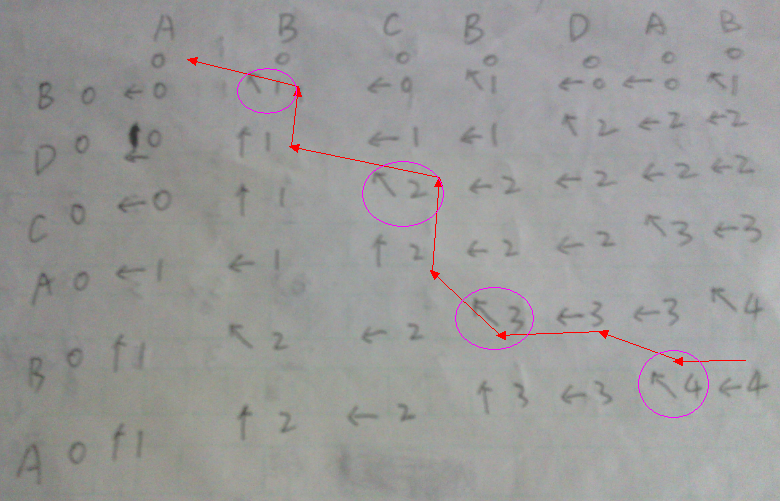 A B C B D A B
0 0 0 0 0 0 0
B 0 ←0 ↖1 ←0 ↖1 ←0 ←0 ↖1
D 0 ↑0 ← ↑1 ←1 ←1 ↖2 ←2 ←2
C 0 ←0 ↑1 ↖2 ←2 ←2 ←2 ←2
A 0 ←1 ←1 ↑2 ←2 ←2 ↖3 ←3
B 0 ↑1 ↖2 ←2 ↖3 ←3 ←3 ↖4
A 0 ↑1 ↑2 ←2 ↑3 ←3 ↖4 ←4